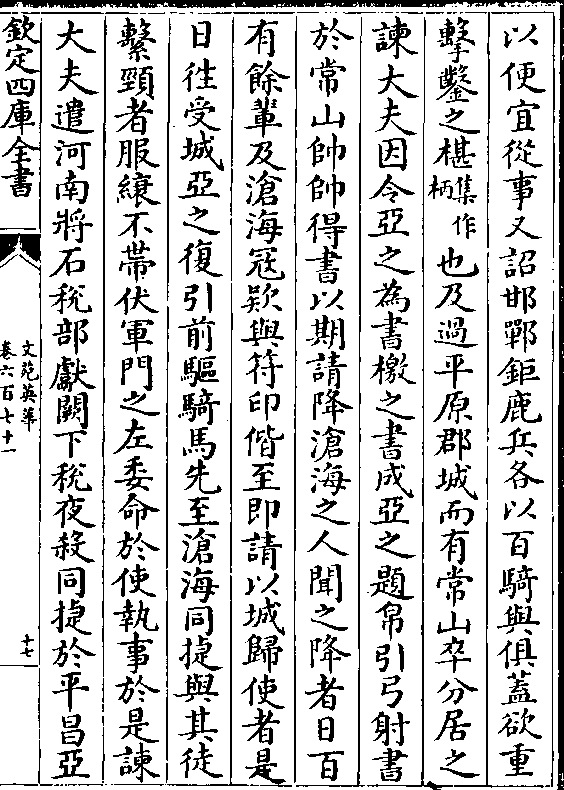 以便宜從事又詔邯鄲鉅鹿兵各以百騎與俱葢欲重
擊鑿之椹集作柄也及過平原郡城而有常山卒分居之
諫大夫因令亞之為書檄之書成亞之題帛引弓射書
於常山帥帥得書以期請降滄海之人聞之降者日百
有餘輩及滄海冦欵與符印偕至即請以城歸使者是
日往受城亞之復引前驅騎馬先至滄海同捷與其徒
繫頸者服縗不帶伏軍門之左委命於使執事於是諫
大夫遣河南將石稅部獻闕下稅夜殺同捷於平昌亞
欽定四庫全書
文苑英華
卷六百七十一
十七